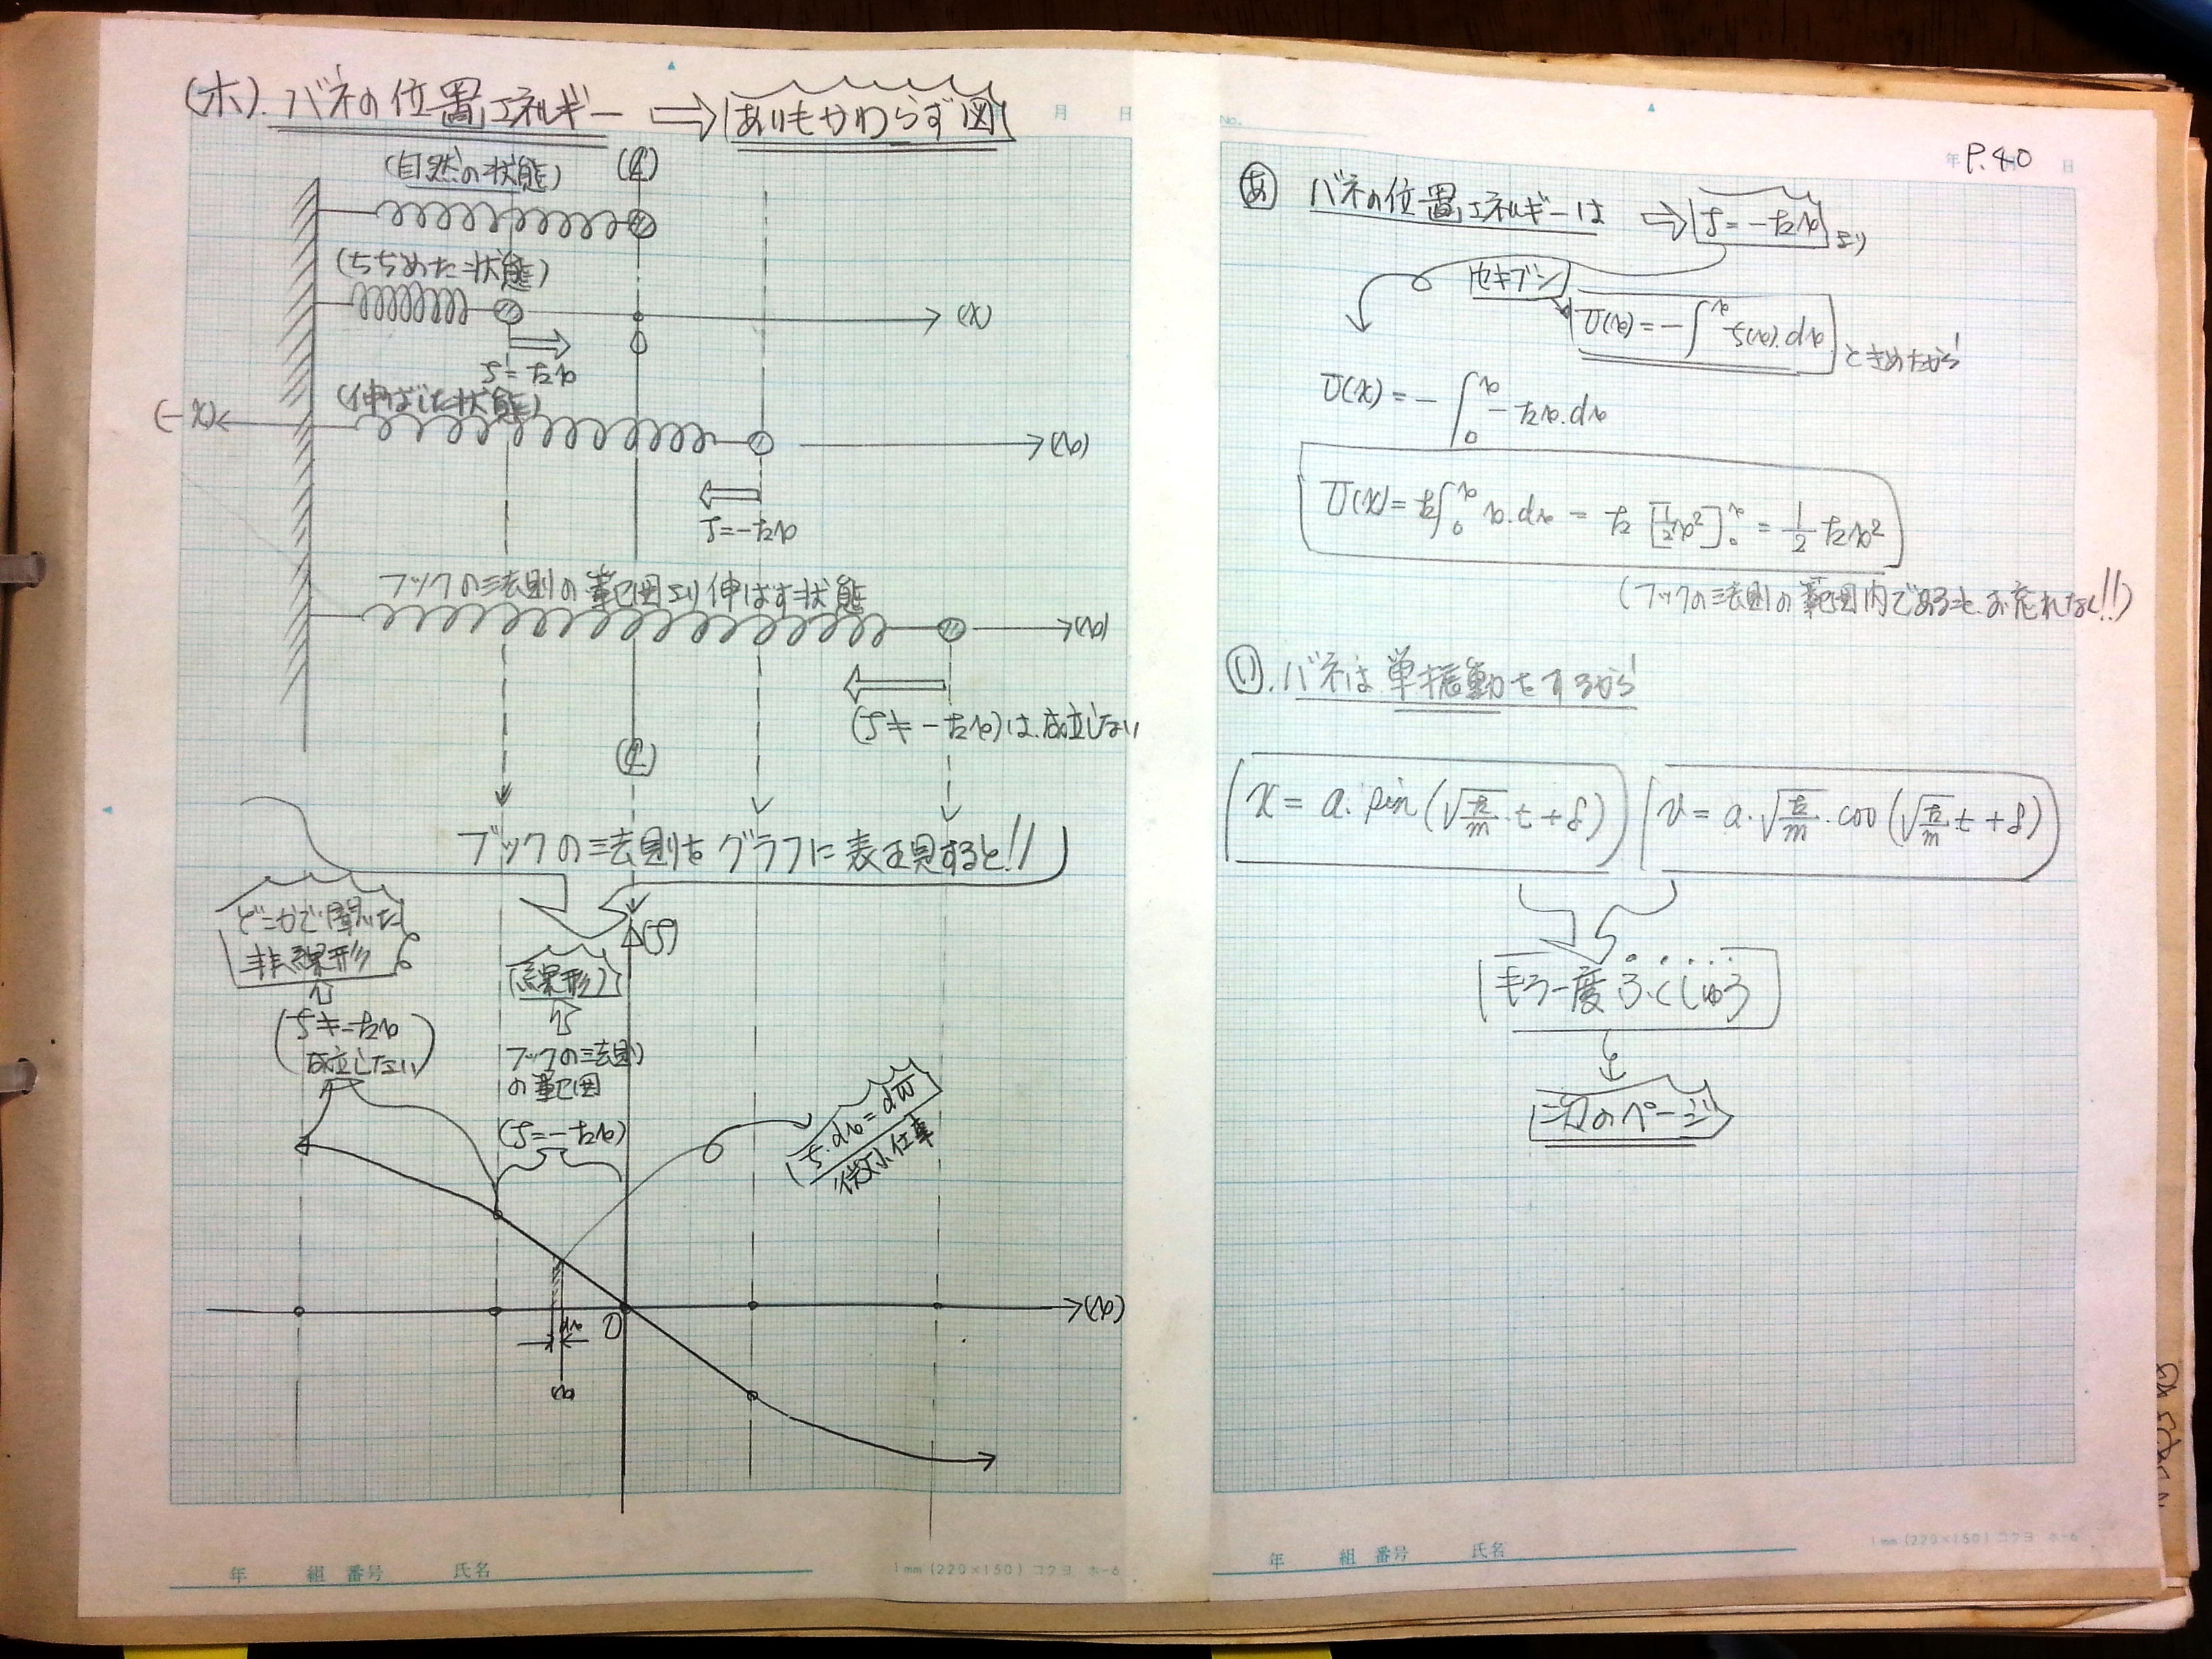 (ホ). バネの位置エネルギー ⇒ あいもかわらず図
(自然の状態) (℄)
(ちぢめた状態)
(x)
O
f = -kx
(伸ばした状態)
(-x) (x)
f = -kx
フックの法則の範囲より伸ばす状態
(x)
(f ≠ -kx)は成立しない
(℄)
フックの法則をグラフに表現すると!!
どこかで聞いた
非線形
(f)
(線形)
(f ≠ -kx
成立しない)
フックの法則
の範囲
(f = -kx)
f・dx = dW
微小仕事
(x)
O
dx
x
年 組 番号 氏名
1mm (220×150) コクヨ ホ-6
月 日
No.
年 P.40 日
あ バネの位置エネルギーは ⇒ f = -kx より
セキブン
U(x) = -∫^x f(x)・dx ときめたから
U(x) = -∫₀^x -kx・dx
U(x) = k∫₀^x x・dx = k [1/2 x²]₀^x = 1/2 kx²
(フックの法則の範囲内であるを、お忘れなく!!)
い. バネは単振動をするから
x = a・sin(√(k/m)・t + δ) v = a・√(k/m)・cos(√(k/m)・t + δ)
もう一度ふくしゅう
次のページ
年 組 番号 氏名
1mm (220×150) コクヨ ホ-6